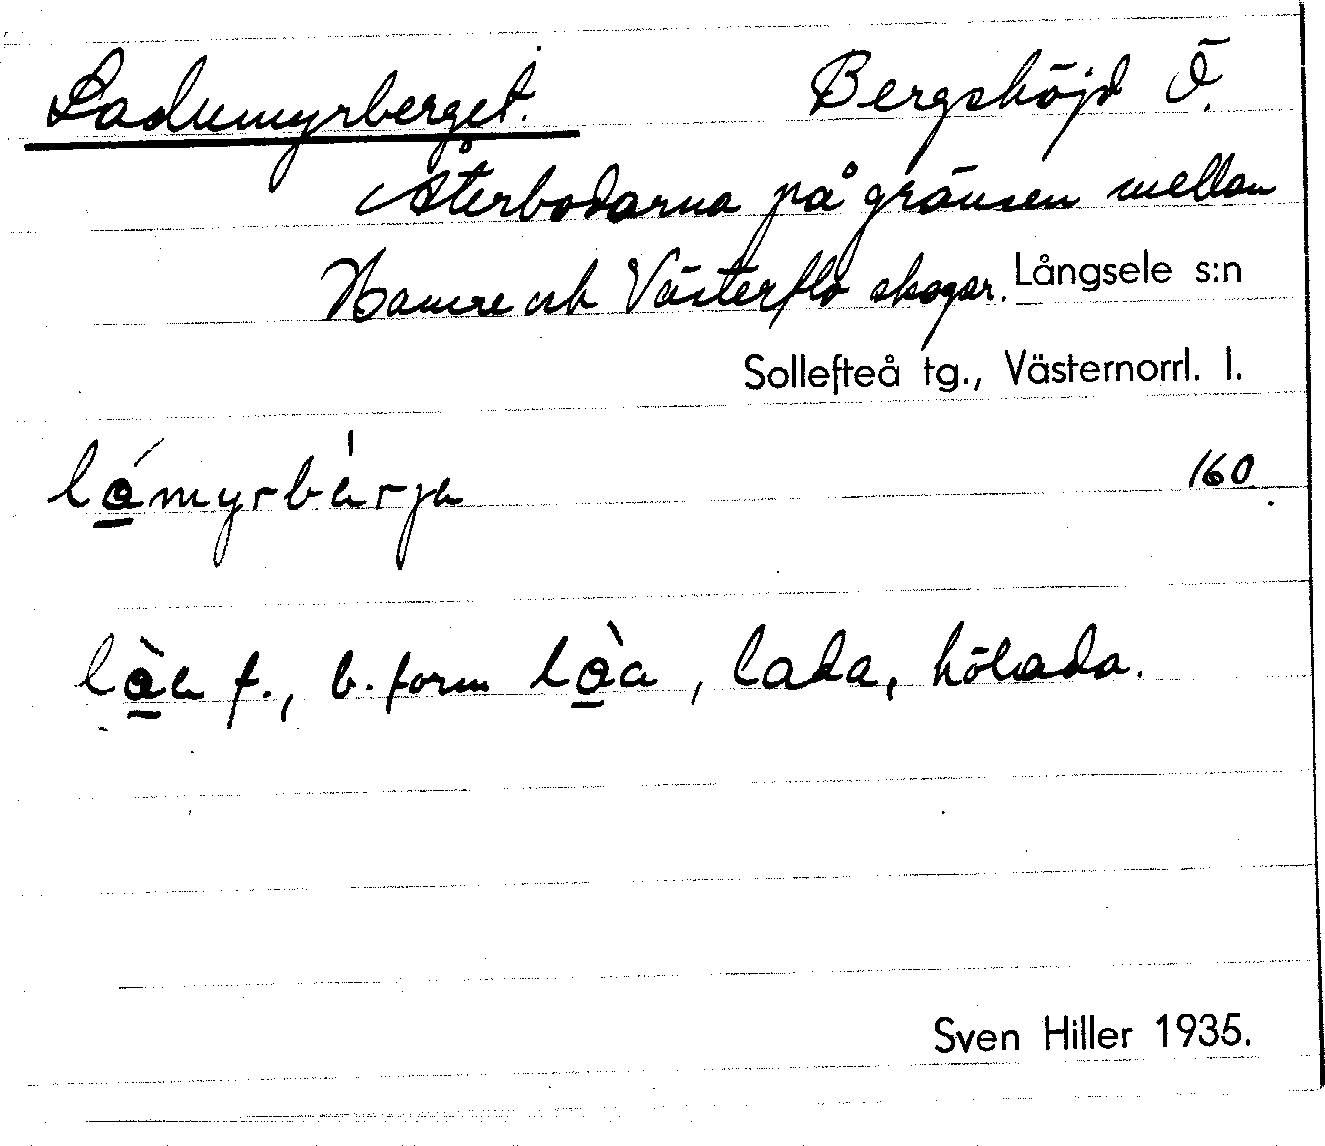 Ladumyrberget. Bergshöjd Ö.
Återbodarna på gränsen mellan
Hamre och Västerflo skogar. Långsele s:n
Sollefteå tg., Västernorrl. l.
160.
f., b. form , lada, hölada.
Sven Hiller 1935.